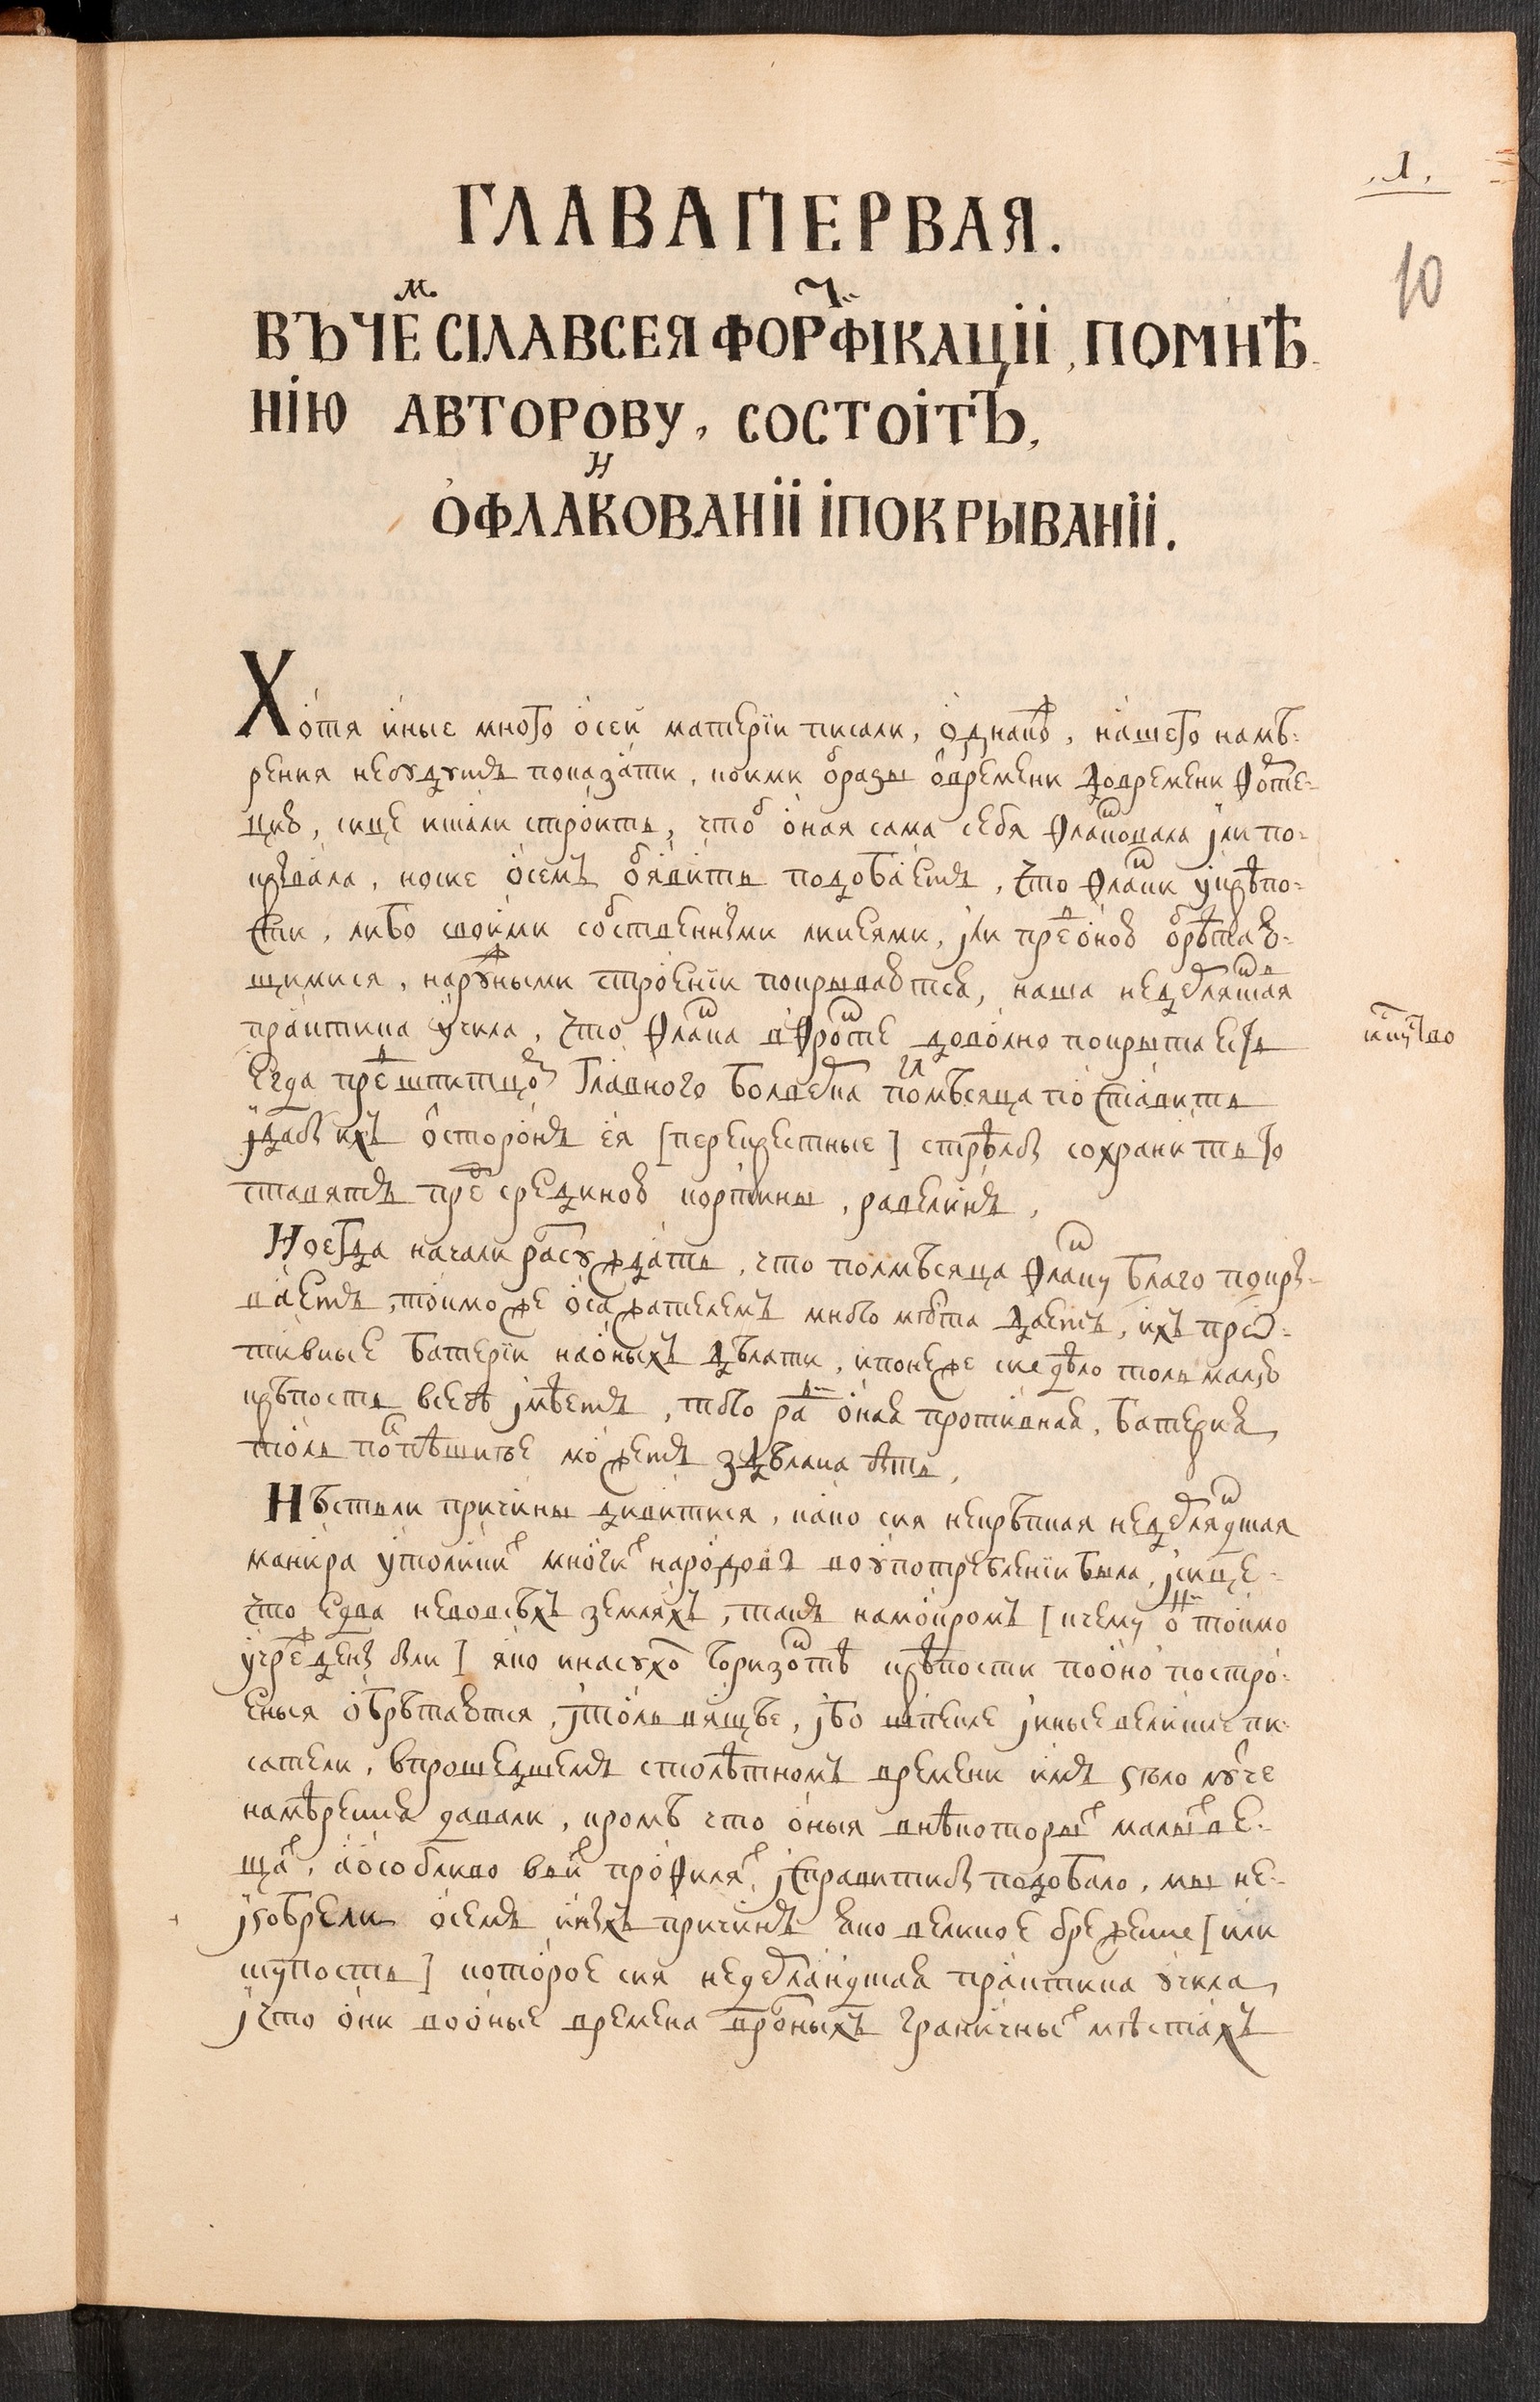 .1.
10
ГЛАВА ПЕРВАЯ.
ВЪ ЧЕМ СІЛА ВСЕЯ ФОРТ҃ФІКАЦІІ, ПОМНѢ-
НІЮ АВТОРОВУ, СОСТОІТЪ,
О ФЛАНКОВАНІІ І ПОКРЫВАНІІ.
Хотя иные много о сей материи писали, однакож, нашего намѣ-
рения небудутъ показати, коими образы от времени до времени форте-
цию, сице искали строить, чтоб оная сама себя фланковала или по-
крывала, но сие о семъ объявить подобаетъ, что фланки у крѣпо-
сти, либо своими собственными линеями, или пред оною обрѣтаю-
щимися, наружными строении покрываются, наша недерлянтская
практика учила, что фланка в фронте доволно покрыта есть
егда пред шпитцом главного болверка полмѣсяца поставить
и дабы ихъ от стороны ея [перекрестные] стрѣлбы сохранить то
ставятъ пред срединою кортины, равелинъ,
Но егда начали разсуждать, что полмѣсяца фланку благо покры-
ваетъ, токмо же осаждателемъ много мѣста даетъ, ихъ проти-
тивные батерии на оныхъ дѣлати, и понеже сие дѣло толь малую
крѣпость в себѣ имѣетъ, того рад оная противная, батерия
толь поспѣшнѣе можетъ здѣлана быть,
Нѣсть ли причины дивитися, како сия некрѣпкая недерляндская
манира у толиких многих народовъ во употреблении была, и сице-
что едва не во всѣхъ земляхъ, такъ на мокромъ [к чему он токмо
учрежденъ были] яко и на сухом горизонтѣ крѣпости по оно построе-
еныя обрѣтаются, и толь вящѣе, ибо шпекле и иные великие пи-
сатели, в прошедшемъ столѣтномъ времени имъ ѕѣло луче
намѣрение давали, кромѣ что оныя в нѣкоторых малых ве-
щах, а особливо в их профилях, исправити бы подобало, мы не-
изобрели о семъ иныхъ причинъ яко великое брежение [или
скупость] которое сия недерландская практика учила,
и что они во оные времена в розныхъ граничных мѣстахъ
искуство